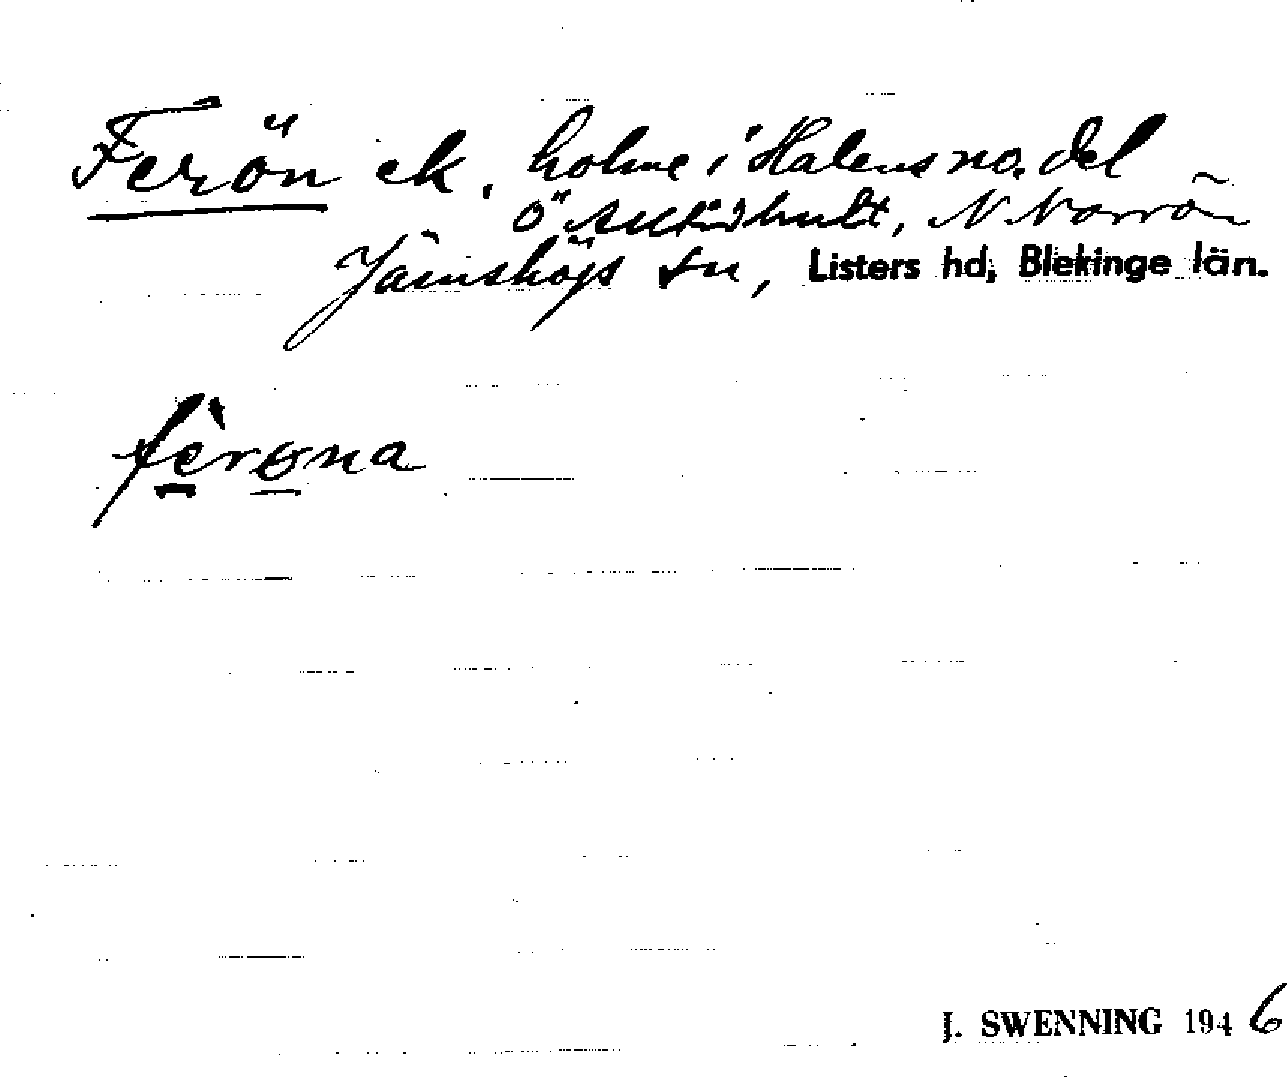 Ferön ek. holme i Halens no. del
Ö Alltidhult, N Norrön
Jämshögs sn, Listers hd, Blekinge län.
fèrøna
J. SWENNING 1946